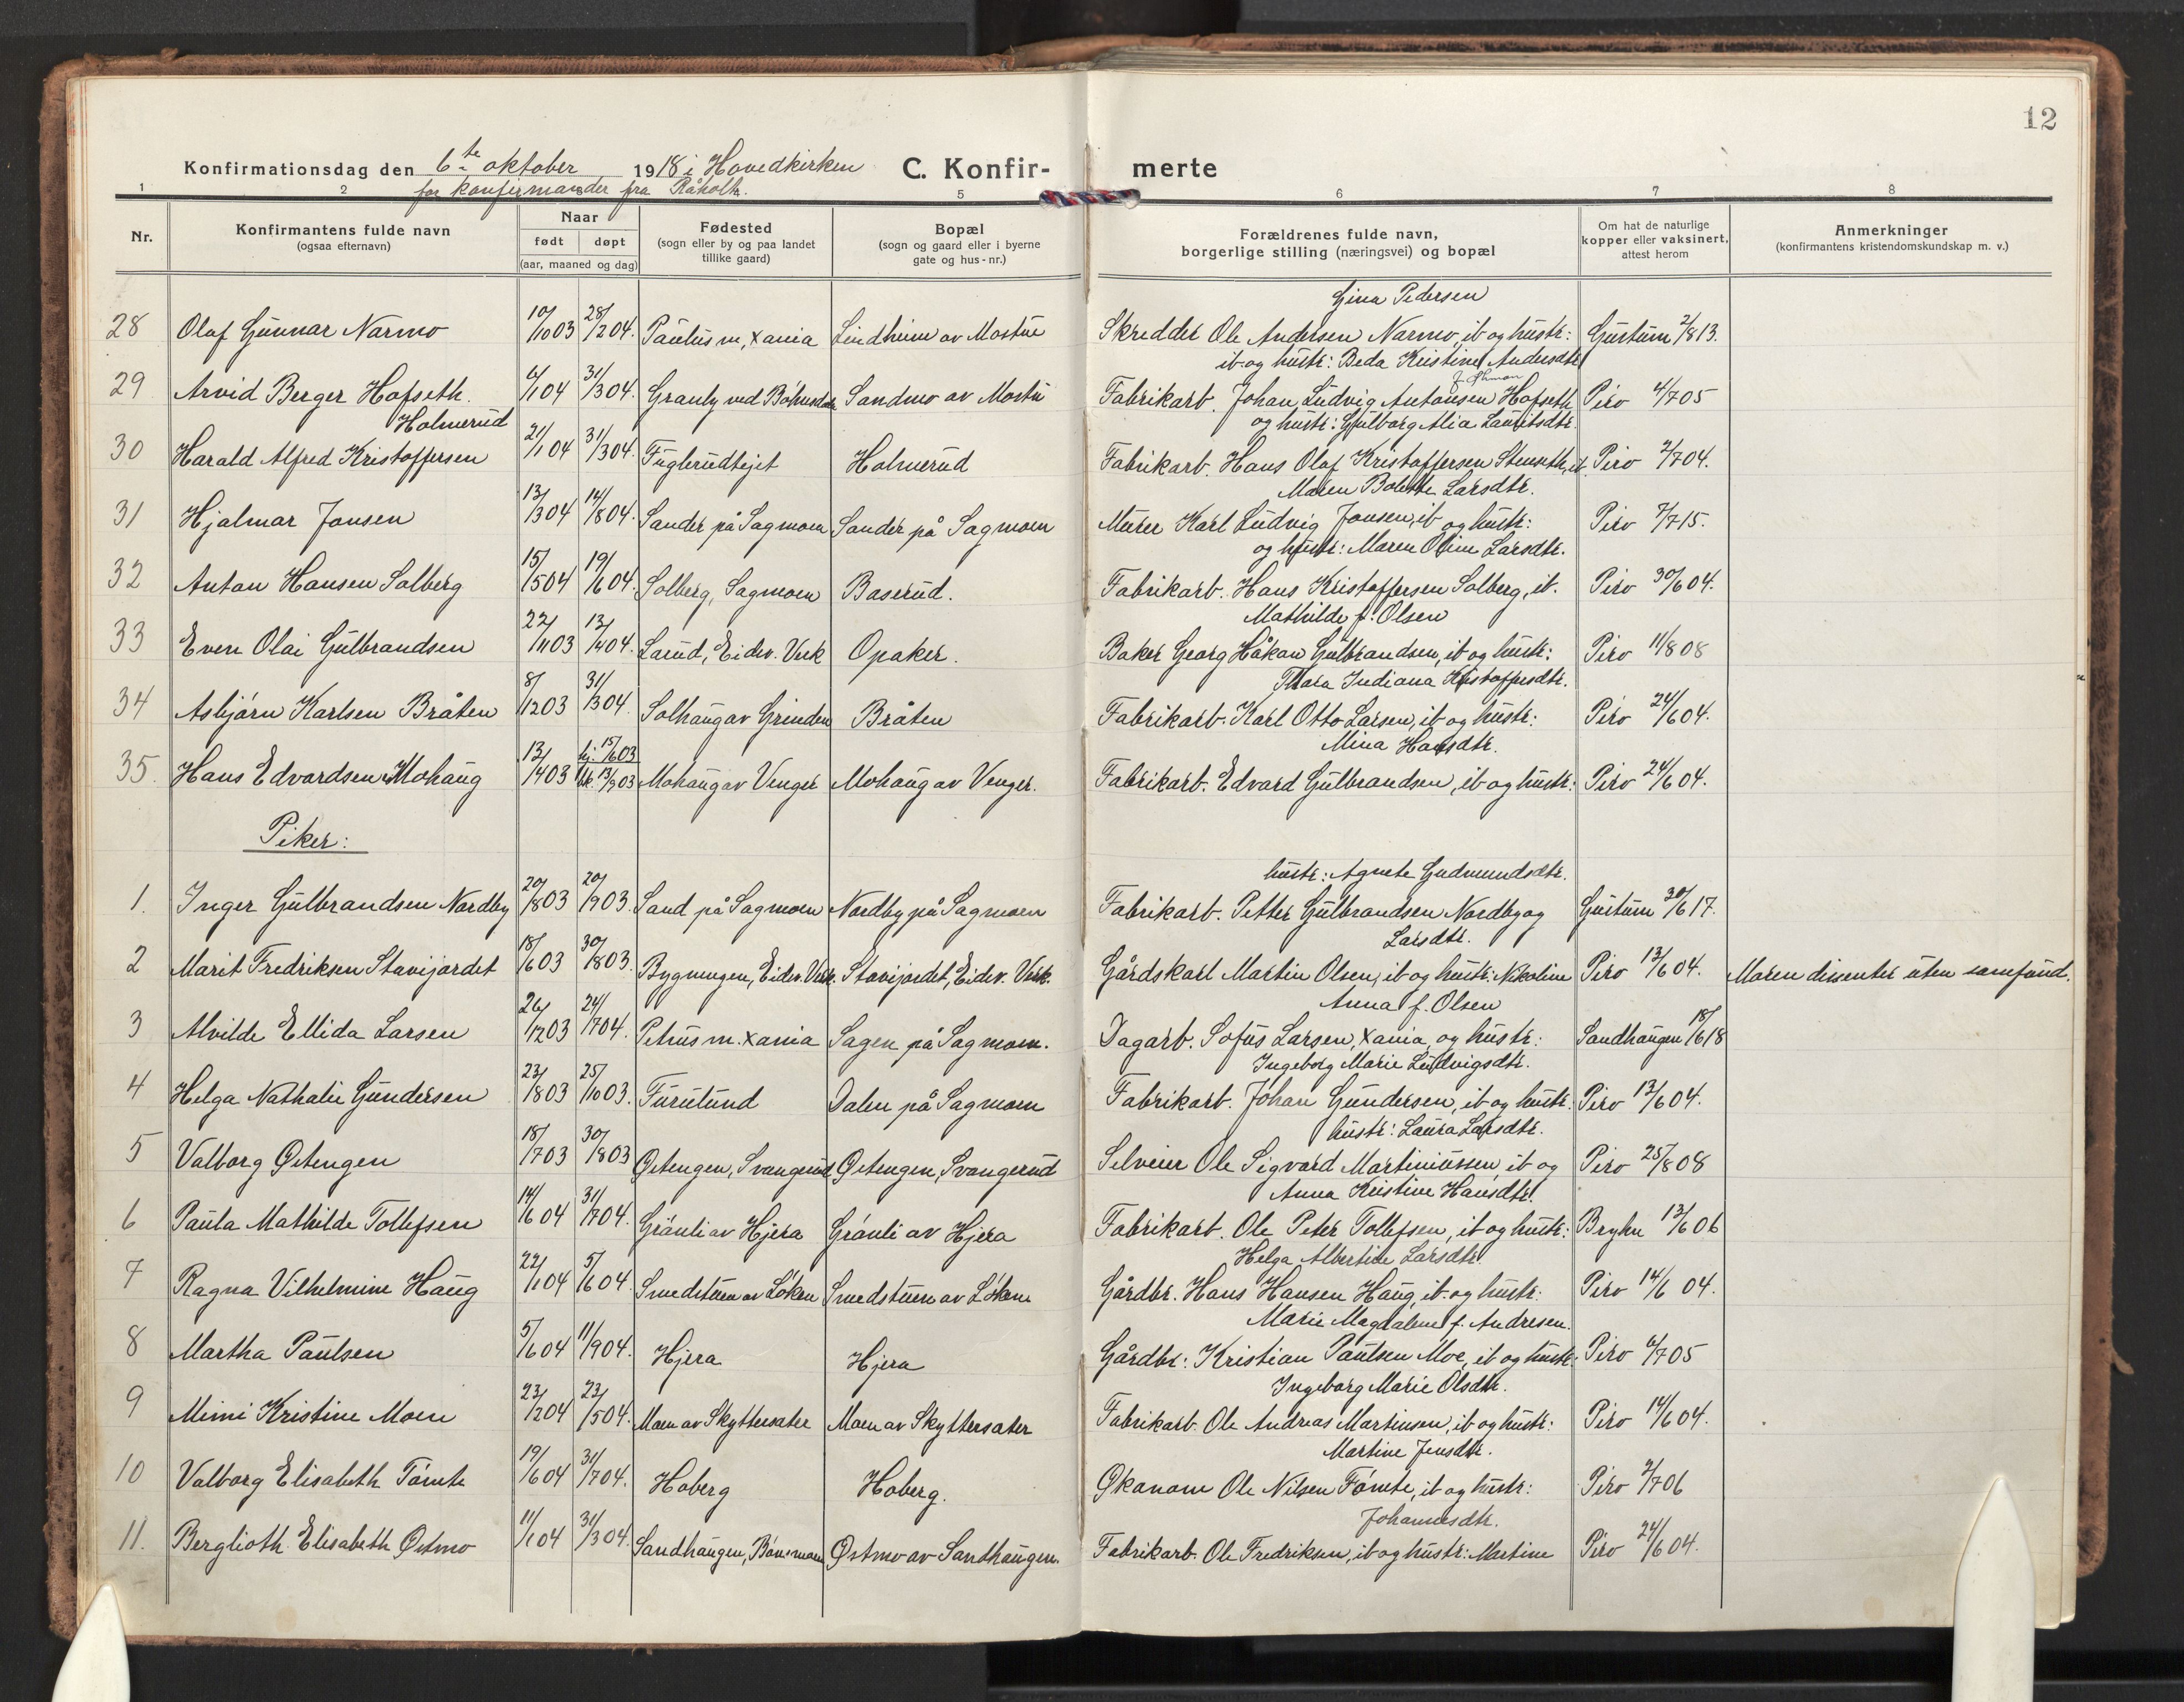 12
Konfirmationsdag den 6te oktober 1918 i Hovedkirken C. Konfir- merte
for konfirmander fra Råholt.
1 2 5 6 7 8
Nr. Konfirmantens fulde navn (ogsaa efternavn) Naar født døpt (aar, maaned og dag) Fødested (sogn eller by og paa landet tillike gaard) Bopæl (sogn og gaard eller i byerne gate og hus-nr.) Forældrenes fulde navn, borgerlige stilling (næringsvei) og bopæl Om hat de naturlige kopper eller vaksinert, attest herom Anmerkninger (konfirmantens kristendomskundskap m. v.)
Gina Pedersen
28 Olaf Gunnar Narmo 10/10 03 28/2 04. Paulus m, Xania Lindheim av Mostue Skredder Ole Andersen Narmo, ib og hustr: Gustum 2/8 13.
ib og hustr: Beda Kristine Andersdtr
29 Arvid Berger Hofseth. 6/1 04 31/3 04. Granly ved Bøhnsdalen Sandmo av Mostu Fabrikarb. Johan Ludvig Antonsen Hofseth Piro 4/7 05
Holmerud og hustr: Gulborg Alia Lauritsdtr.
30 Harald Alfred Kristoffersen 21/1 04 31/3 04. Fuglerudhejet Holmerud Fabrikarb. Hans Olaf Kristoffersen Stenseth, ib. Piro 2/7 04.
Maren Bolette Larsdtr.
31 Hjalmar Jonsen 13/3 04 14/8 04. Sander på Sagmoen Sander på Sagmoen Murer Karl Ludvig Jonsen, ib og hustr: Piro 7/7 15.
og hustr: Maren Oline Larsdtr.
32 Anton Hansen Solberg 15/5 04 19/6 04. Solberg, Sagmoen Baserud. Fabrikarb. Hans Kristoffersen Solberg, ib. Piro 30/6 04.
Mathilde f. Olsen
33 Even Olai Gulbrandsen 22/11 03 13/4 04. Larud, Eidsv. Verk Opaker. Baker Georg Håkon Gulbrandsen, ib og hustr: Piro 11/8 08
Thora Indiana Kristoffersdtr.
34 Asbjørn Karlsen Bråten 8/12 03 31/3 04. Solhaug av Grinden Bråten Fabrikarb. Karl Otto Larsen, ib og hustr: Piro 24/6 04.
Mina Hansdtr.
35. Hans Edvardsen Mohaug 13/4 03 hj. 15/6 03 13/9 03 Mohaug av Venger Mohaug av Venger. Fabrikarb. Edvard Gulbrandsen, ib og hustr: Piro 24/6 04.
Piker:
hustr: Agnete Gudmundsdtr.
1. Inger Gulbrandsen Nordby 20/8 03 20/9 03. Sand på Sagmoen Nordby på Sagmoen Fabrikarb. Petter Gulbrandsen Nordby og Gustum 30/6 17.
Larsdtr.
2 Marit Fredriksen Stavijordet 18/6 03 30/8 03. Bygningen, Eidsv. Verk. Stavijordet, Eidsv. Verk. Gårdskarl Martin Olsen, ib og hustr: Nikoline Piro 13/6 04. Moren dissenter uten samfund.
Anna f. Olsen
3 Alvilde Ellida Larsen 26/12 03 24/7 04. Petrus m. Xania Sagen på Sagmoen. Dagarb. Sofus Larsen, Xania, og hustr: Sandhaugen 18/6 18
Ingeborg Marie Ludvigsdtr.
4 Helga Nathalie Gundersen 23/8 03 25/10 03. Furulund Dalen på Sagmoen Fabrikarb. Johan Gundersen, ib og hustr. Piro 13/6 04.
hustr: Laura Larsdtr.
5 Valborg Østengen 18/7 03 30/8 03 Østengen, Svangerud Østengen, Svangerud Selveier Ole Sigvard Martiniussen ib og Piro 25/8 08
Anna Kristine Hansdtr.
6 Paula Mathilde Tollefsen 14/6 04 31/7 04. Grønli av Hjera Grønli av Hjera Fabrikarb. Ole Peter Tollefsen, ib og hustr: Bryhn 13/6 06
Helga Albertine Larsdtr.
7 Ragna Vilhelmine Haug 22/1 04 5/6 04. Smedstuen av Løken Smedstuen av Løken Gårdbr. Hans Hansen Haug, ib. og hustr: Piro 14/6 04.
Marie Magdalene f. Andresen.
8 Martha Paulsen 5/6 04 11/9 04. Hjera Hjera Gårdbr: Kristian Paulsen Moe, ib og hustr: Piro 6/7 05
Ingeborg Marie Olsdtr.
9 Mimi Kristine Moen 23/2 04 23/5 04. Moen av Skyttersater Moen av Skyttersater Fabrikarb. Ole Andreas Martinsen, ib og hustr: Piro 14/6 04.
Martine Jensdtr.
10 Valborg Elisabeth Tømte 19/6 04 31/7 04. Hoberg Hoberg. Økonom Ole Nilsen Tømte, ib og hustr: Piro 2/7 06
Johannesdtr.
11. Berglioth Elisabeth Østmo 11/1 04 31/3 04. Sandhaugen, Bønsmoen Østmo av Sandhaugen. Fabrikarb. Ole Fredriksen, ib og hustr: Martine Piro 24/6 04.